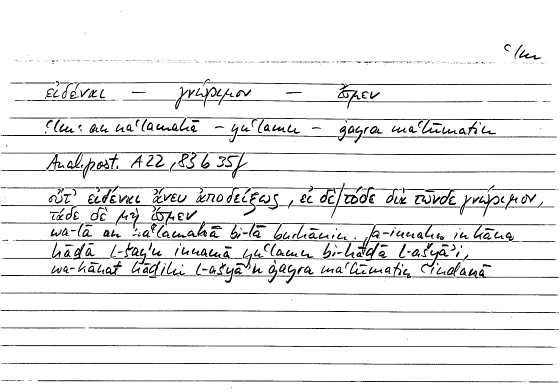 ʿlm
εἰδέναι — γνώριμον — ἴσμεν
ʿlm: an naʿlamahā – yuʿlamu – ġayra maʿlūmatin
Anal. post. A 22, 83 b 35f
οὔτ' εἰδέναι ἄνευ ἀποδείξεως, εἰ δὲ τόδε διὰ τῶνδε γνώριμον,
τάδε δὲ μὴ ἴσμεν
wa-lā an naʿlamahā bi-lā burhānin. fa-innahu in kāna
hāḏā l-šayʾu innamā yuʿlamu bi-hāḏā l-ašyāʾi,
wa-kānat hāḏihi l-ašyāʾu ġayra maʿlūmatin ʿindanā